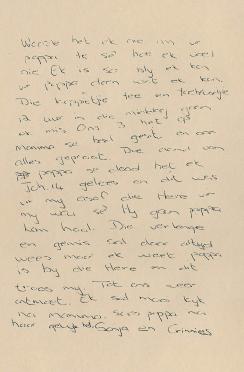 het ek nie in vir
pappa te sê hoe ek voel
nie Ek is so bly ek kon
vir pappa doen wat ek kon.
Die koppietjie tee en
11 uur in die môre gaan
ek mis Ons 3 het op
mamma se bed gesit en oor
alles gepraat. Die aand van
pappa se dood het ek
Joh. 14 gelees en dit was
vir my asof die Here vir
my wou sê Hy gaan pappa
kom haal. Die verlange
en gemis sal daar altyd
wees maar ek weet pappa
is by die Here en dit
troos my. Tot ons weer
ontmoet. Ek sal mooi kyk
na mamma. soos pappa na
haar gekyk het. Sonja en